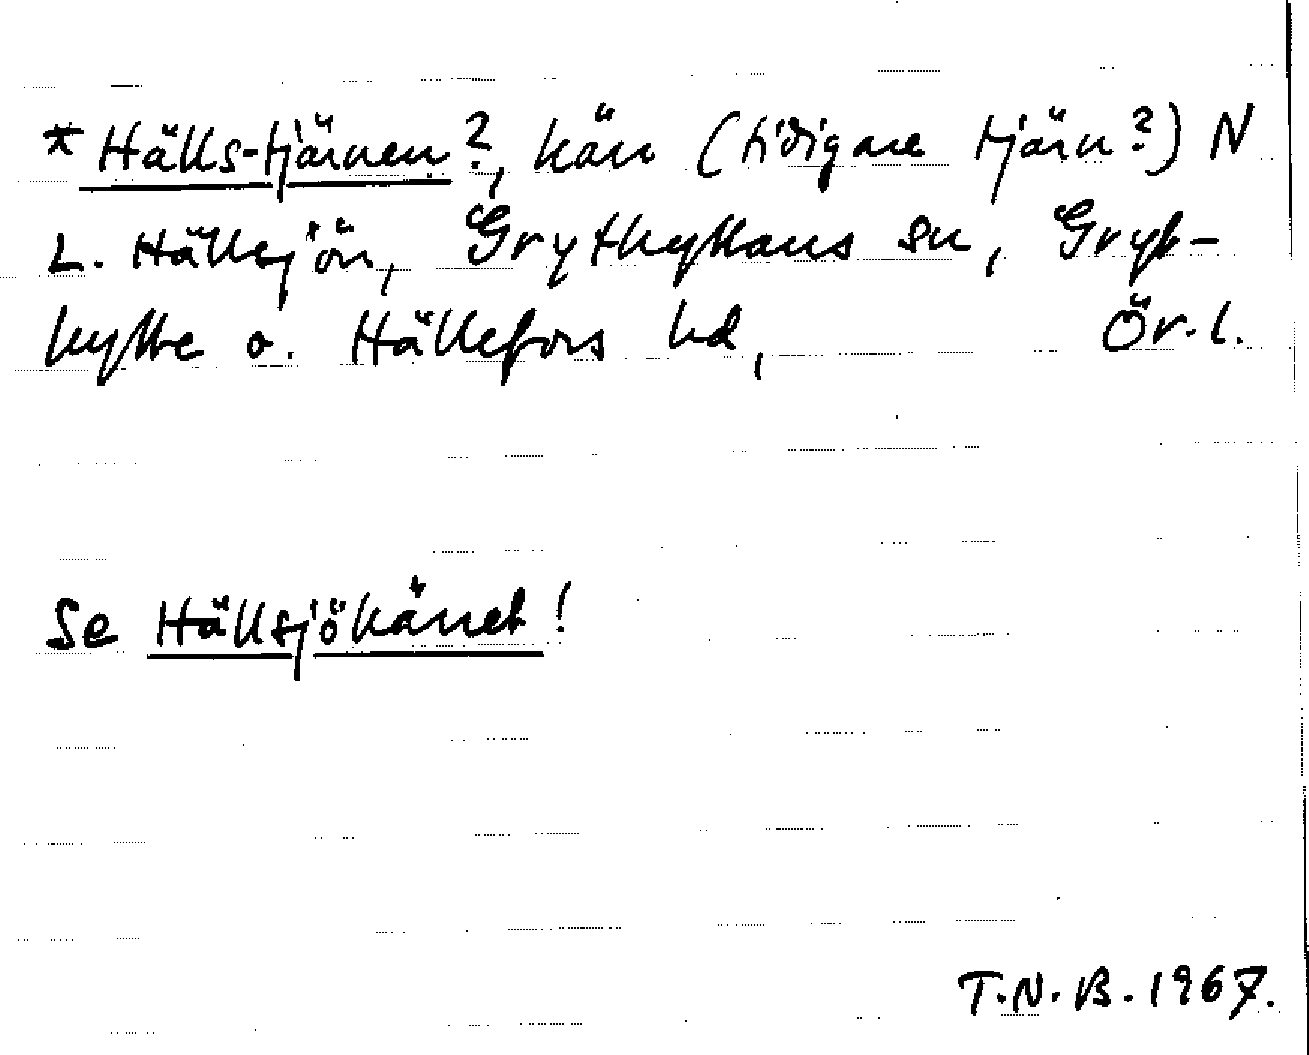 * Hälls-tjärnen?, kärr (tidigare tjärn?) N
L. Hällsjön, Grythyttans sn, Gryt-
hytte o. Hällefors hd, Ör. l.
Se Hällsjökärret!
T.N.B. 1967.